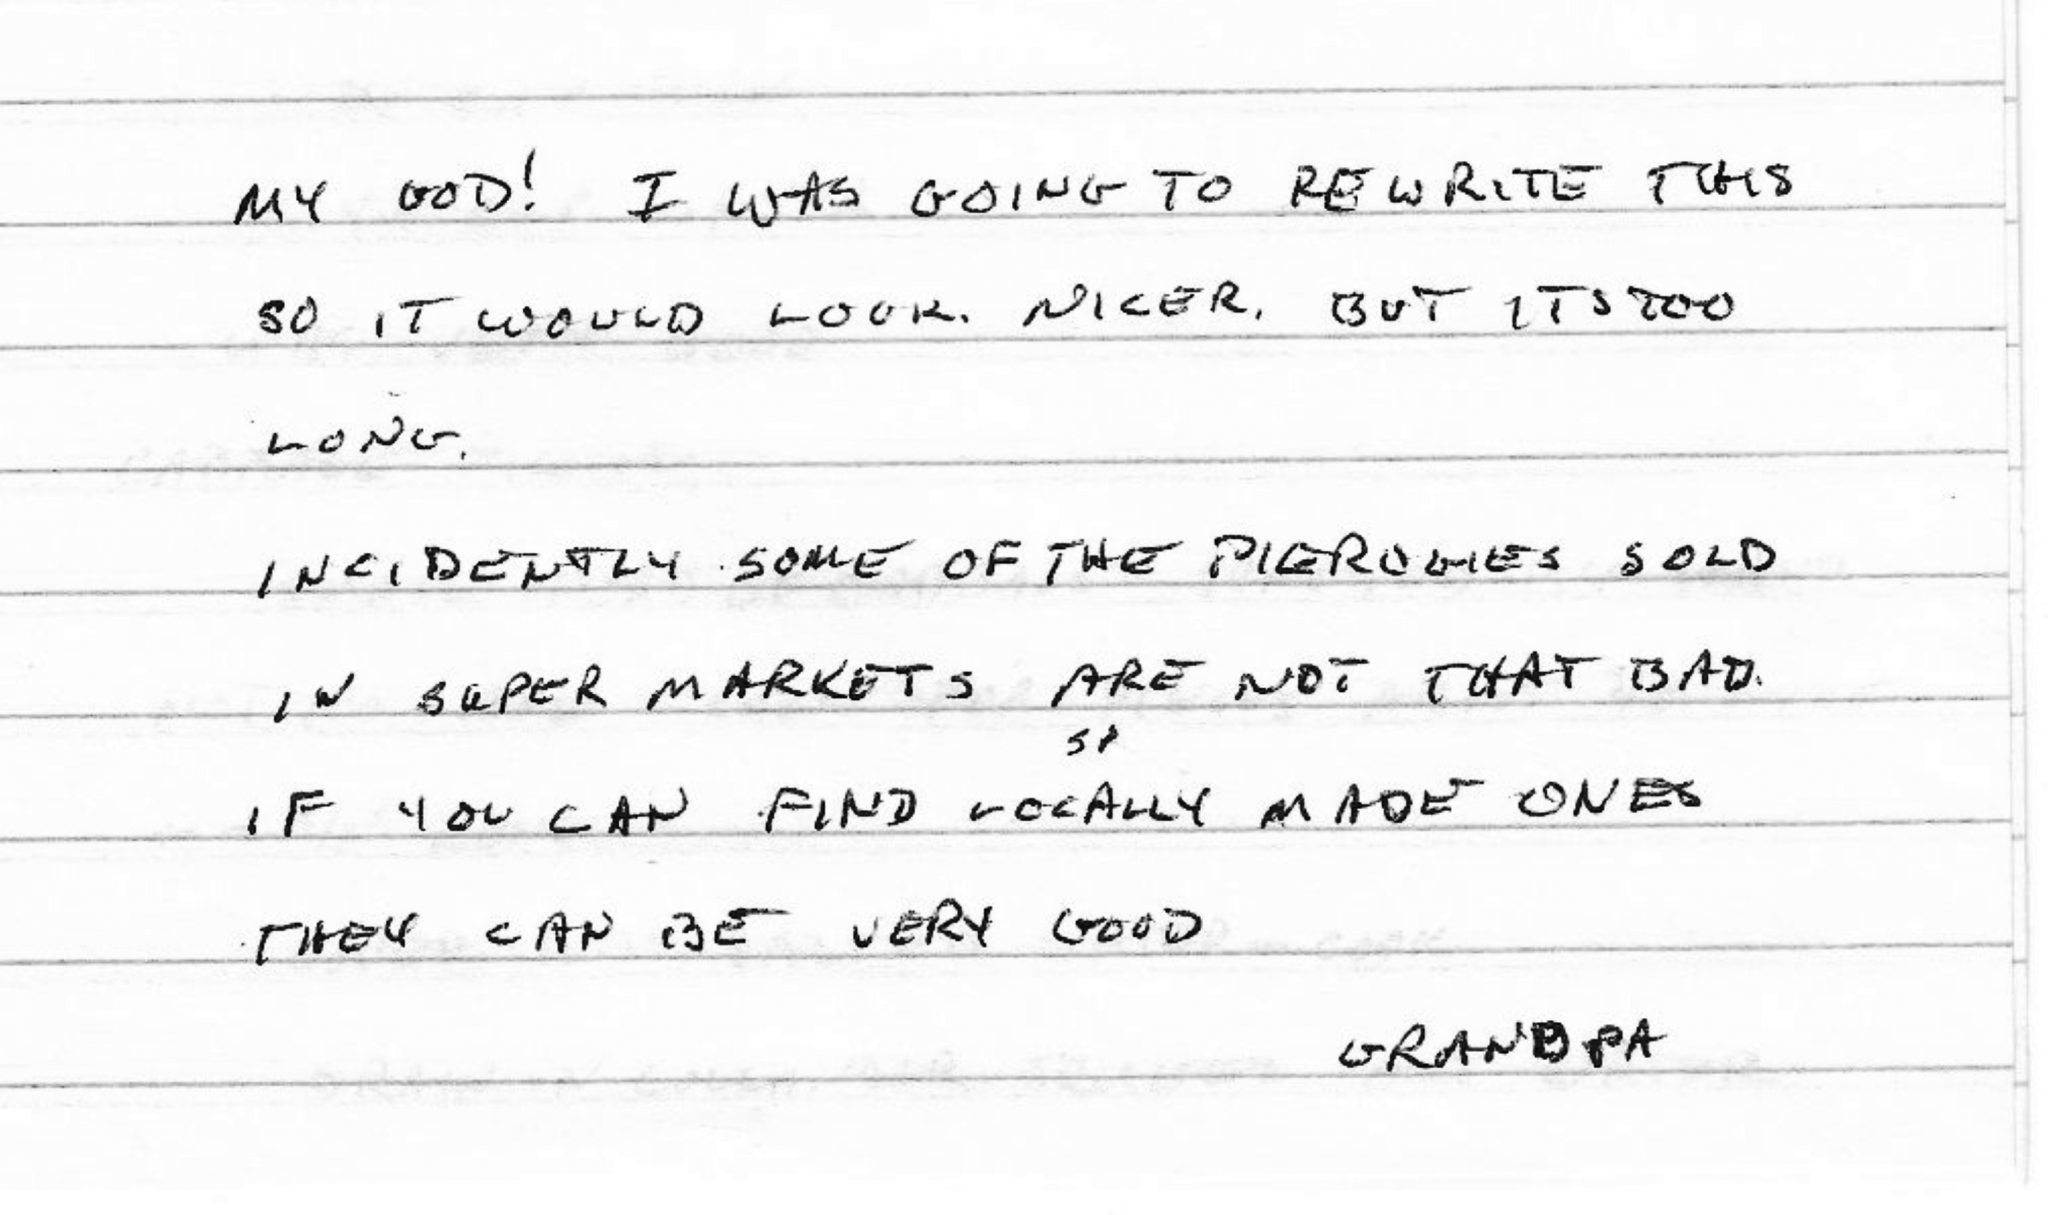 MY GOD! I WAS GOING TO REWRITE THIS
SO IT WOULD LOOK. NICER. BUT ITS TOO
LONG.
INCIDENTLY SOME OF THE PIEROGIES SOLD
IN SUPER MARKETS ARE NOT THAT BAD.
SP
IF YOU CAN FIND LOCALLY MADE ONES
THEY CAN BE VERY GOOD
GRANDPA